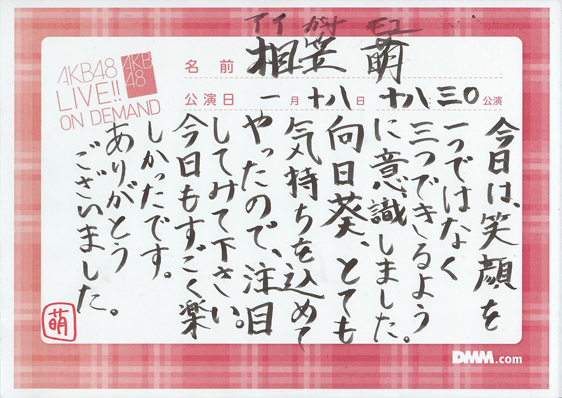 AKB48
LIVE!!
ON DEMAND
AKB
48
アイ がさ モエ
名前 相笠 萌
公演日 一月十八日 十八三〇公演
今日は、笑顔を
一つではなく
三つできるよう
に意識しました。
向日葵、とても
気持ちを込めて
やったので、注目
してみて下さい。
今日もすごく楽
しかったです。
ありがとう
ございました。
萌
DMM.com